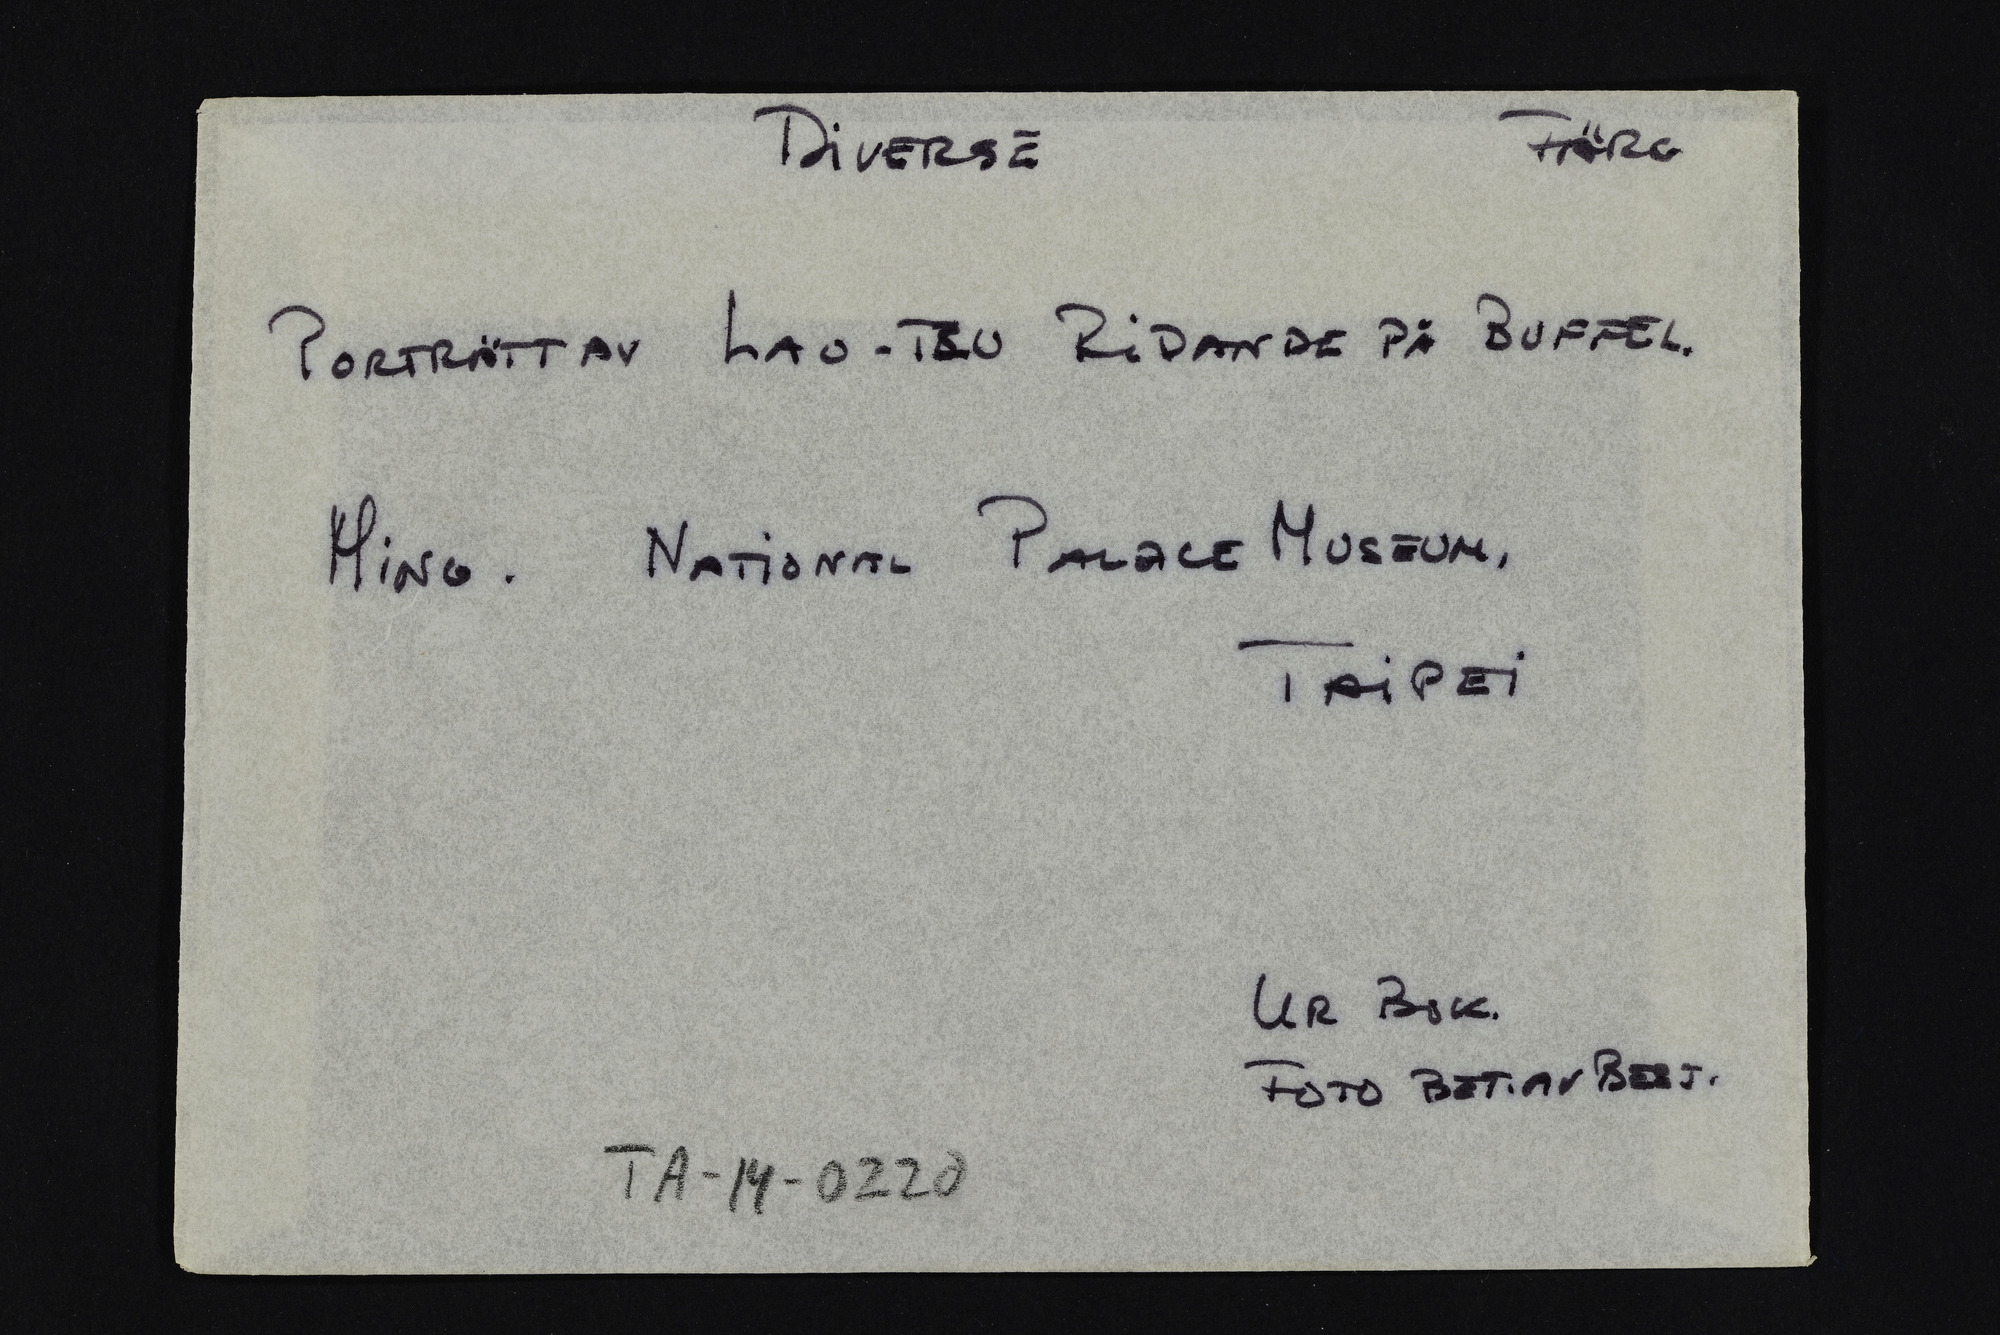 DIVERSE FÄRG
PORTRÄTT AV LAO-TSU RIDANDE PÅ BUFFEL.
MING. NATIONAL PALACE MUSEUM,
TAIPEI
UR BOK.
FOTO BET. AV BEST.
TA-14-0220